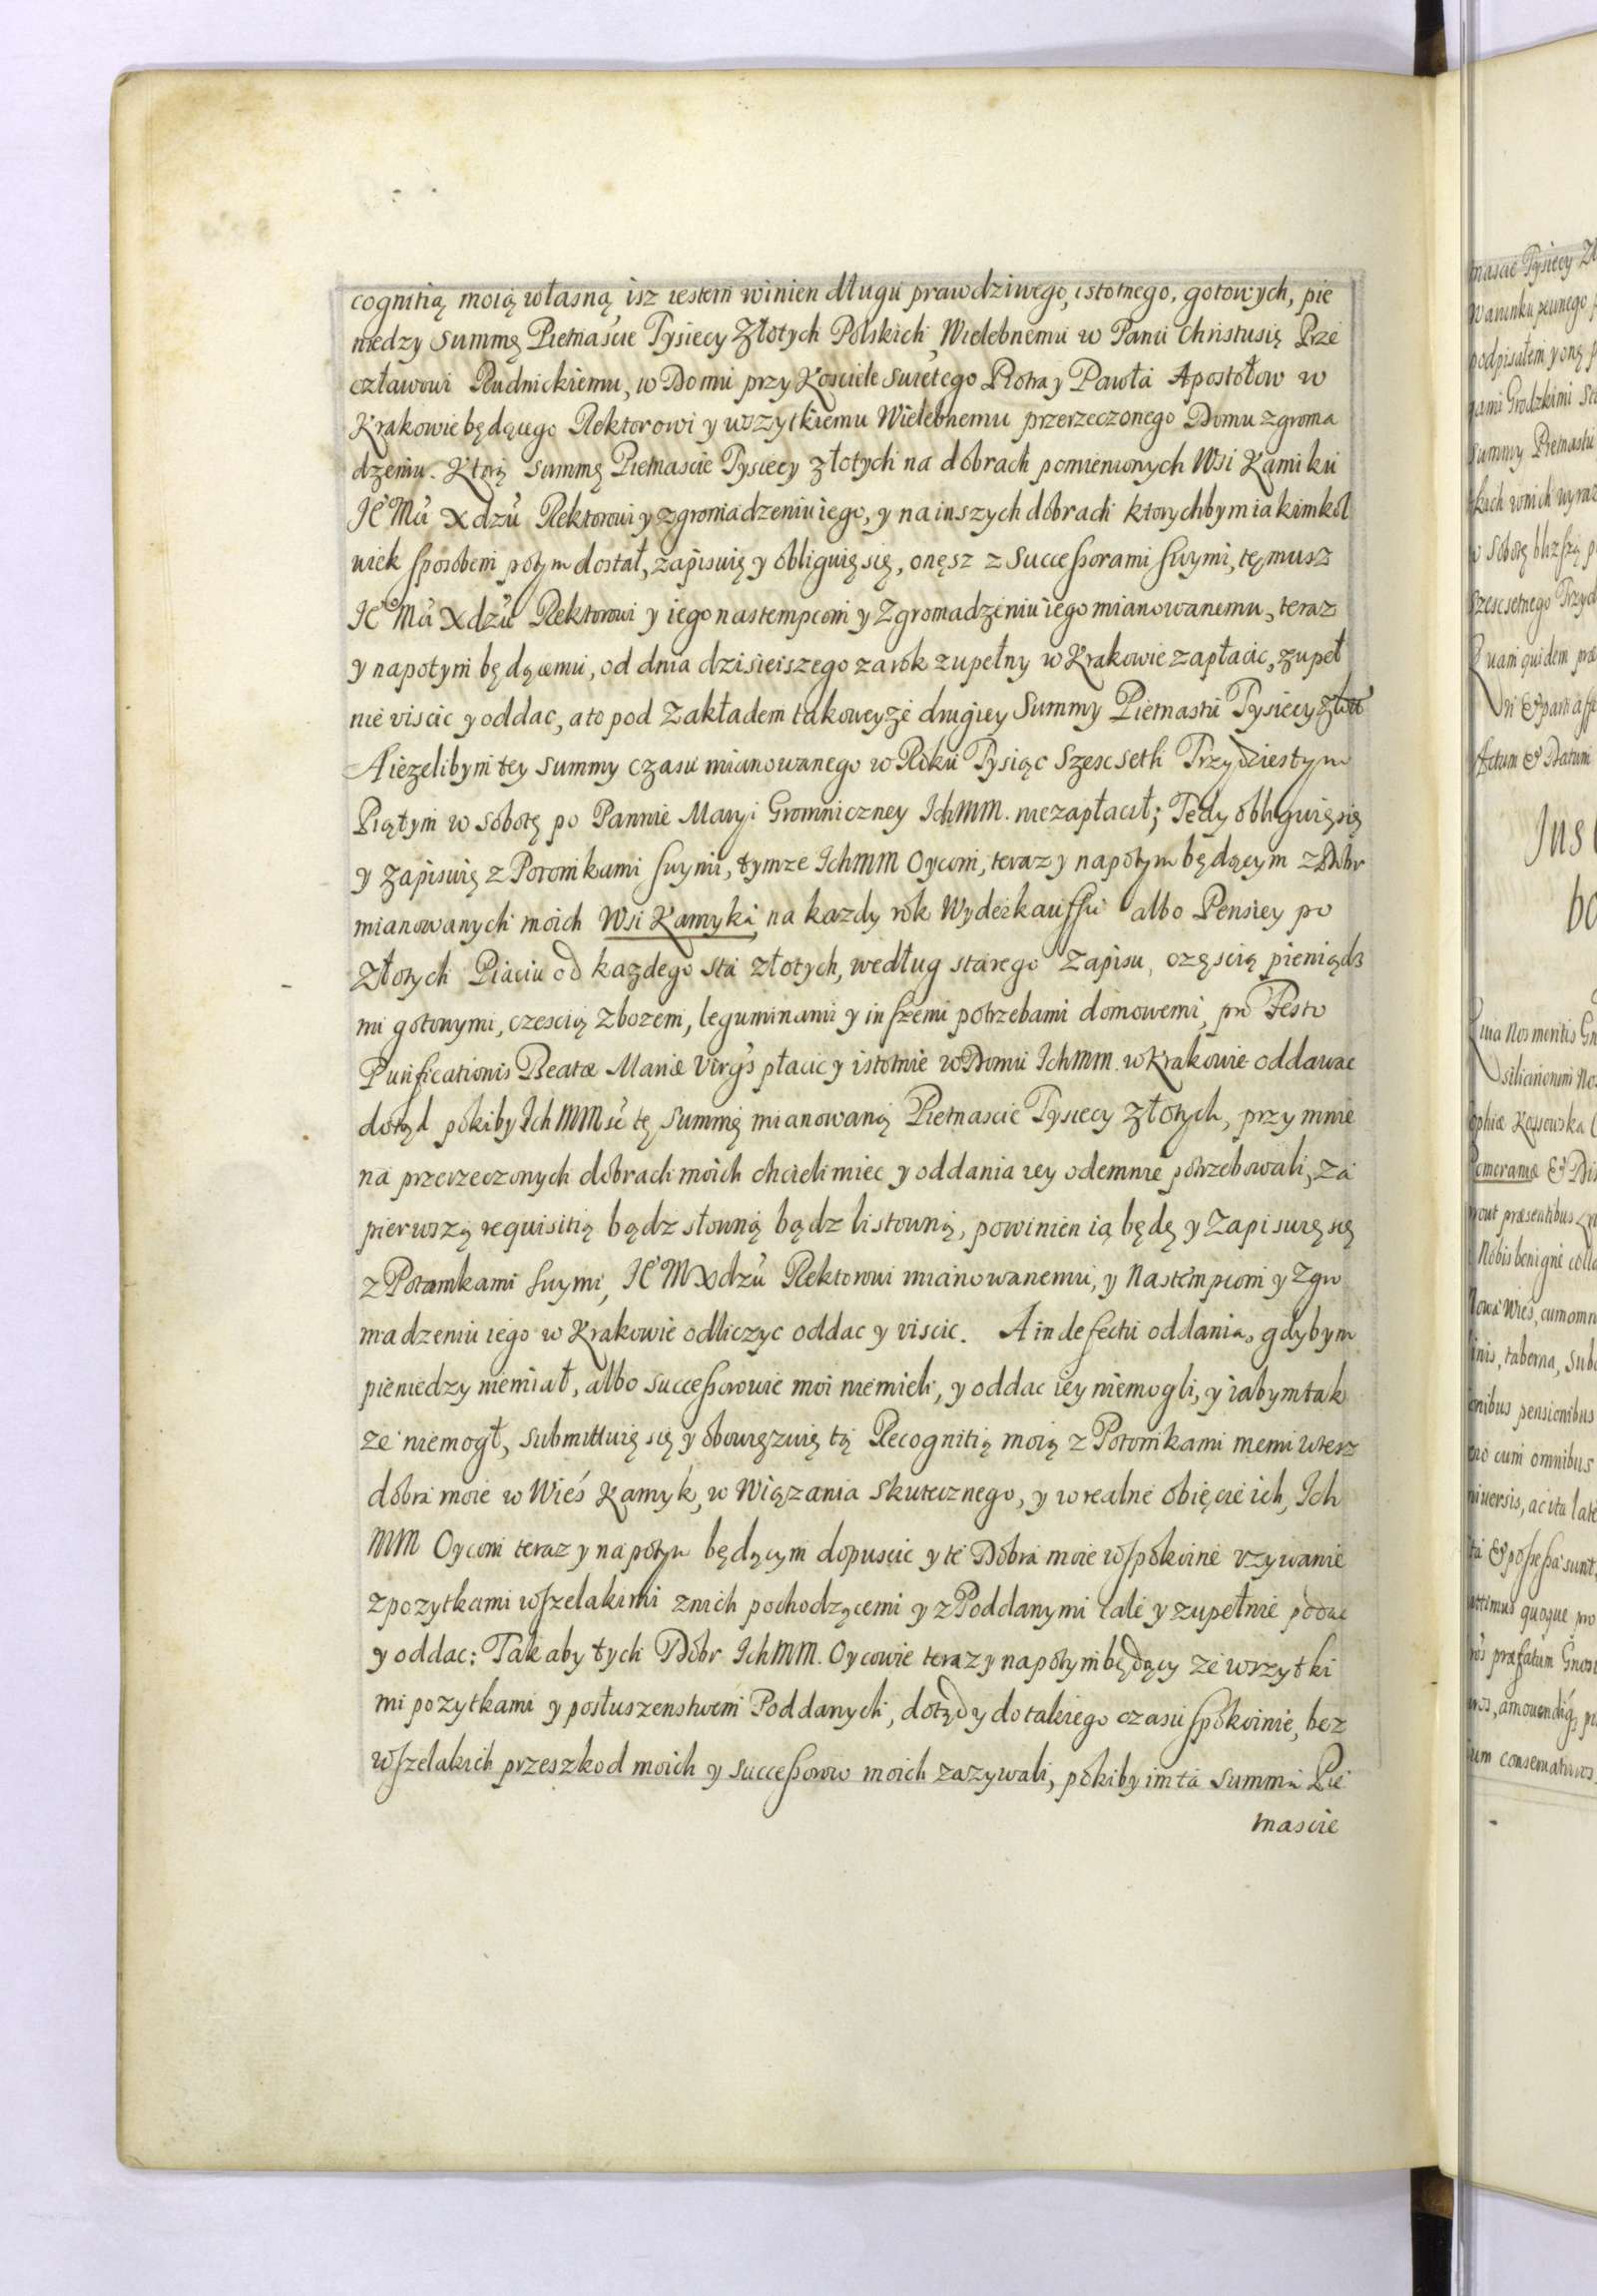 cognitią moią własną isz iestem winien długu prawdziwego, istotnego, gotowych, pie
niedzy Summę Pietnascie Tysiecy Złotych Polskich, Wielebnemu w Panu Christusię Prze
cławowi Rudnickiemu, w Domu przy Kosciele Swietego Piotra y Pawła Apostołow w
Krakowie będąiego Rektorowi y wszytkiemu Wielebnemu przerzeczonego Domu zgroma
dzeniu. Ktorą Summę Pietnascie Tysiecy złotych na dobrach pomienionych Wsi Kamiku
Je° Mći Xdzu Rektorowi y zgromadzeniu iego, y na inszych dobrach ktorychbym iakimkol
wiek sposobem potym dostał, zapisuię y obliguię się, onęsz z Successorami swymi, temusz
Je° Mći Xdzu Rektorowi y iego nastempcom y Zgromadzeniu iego mianowanemu, teraz
y napotym będącemu, od dnia dzisieiszego za rok zupełny w Krakowie zapłacic, zupeł
nie viscic y oddac, a to pod zakładem takoweyze drugiey Summy Pietnastu Tysiecy Złott
A iezelibym tey summy czasu mianowanego w Roku Tysiąc Szescseth Trzydziestym
Piątym w Sobotę po Pannie Maryi Gromniczney Ich MM. niezapłacił; Tedy obliguię się
y zapisuię z Potomkami swymi, tymze Ich MM Oycom, teraz y napotym będącym z Dobr
mianowanych moich Wsi Kamyki na kazdy rok Wyderkauffu albo Pensiey po
Złotych Piąciu od kazdego sta złotych, według starego Zapisu, częscią pieniądz
mi gotowymi, czescią zbozem, leguminami y inszemi potrzebami domowemi, pro Festo
Purificationis Beatæ Mariæ Virgs płacic y istotnie w Domu Ich MM. w Krakowie oddawac
dotąd pokiby Ich MMsc tę Summę mianowaną Pietnascie Tysiecy złotych, przy mnie
na przerzeczonych dobrach moich chcieli miec y oddania iey odemnie potrzebowali, Za
pierwszą requisitią bądz słowną bądz listowną, powinien ią będę y Zapisuię się
z Potomkami swymi, Je° M Xdzu Rektorowi mianowanemu, y Nastempcom y Zgro
madzeniu iego w Krakowie odliczyc oddac y viscic. A in defectu oddania, gdybym
pieniedzy niemiał, albo successorowie moi niemieli, y oddac iey niemogli, y iabym tak
ze niemogł, submittuię się y obowięzuię tą Recognitią moią z Potomkami memi wtesz
dobra moie w Wieś Kamyk, w Wiązania Skutecznego, y w realne obięcie ich, Ich
MM Oycom teraz y napotym będącym dopuscic y te Dobra moie w spokoine vzywanie
z pozytkami wszelakimi z nich pochodzącemi y z Poddanymi cale y zupełnie podac
y oddac: Tak aby tych Dobr Ich MM. Oycowie teraz y napotym będący ze wszytki
mi pozytkami y posłuszenstwem Poddanych, dotądy do takiego czasu spokoinie, bez
wszelakich przeszkod moich y successorow moich zazywali, pokiby im ta summa Pie
tnascie